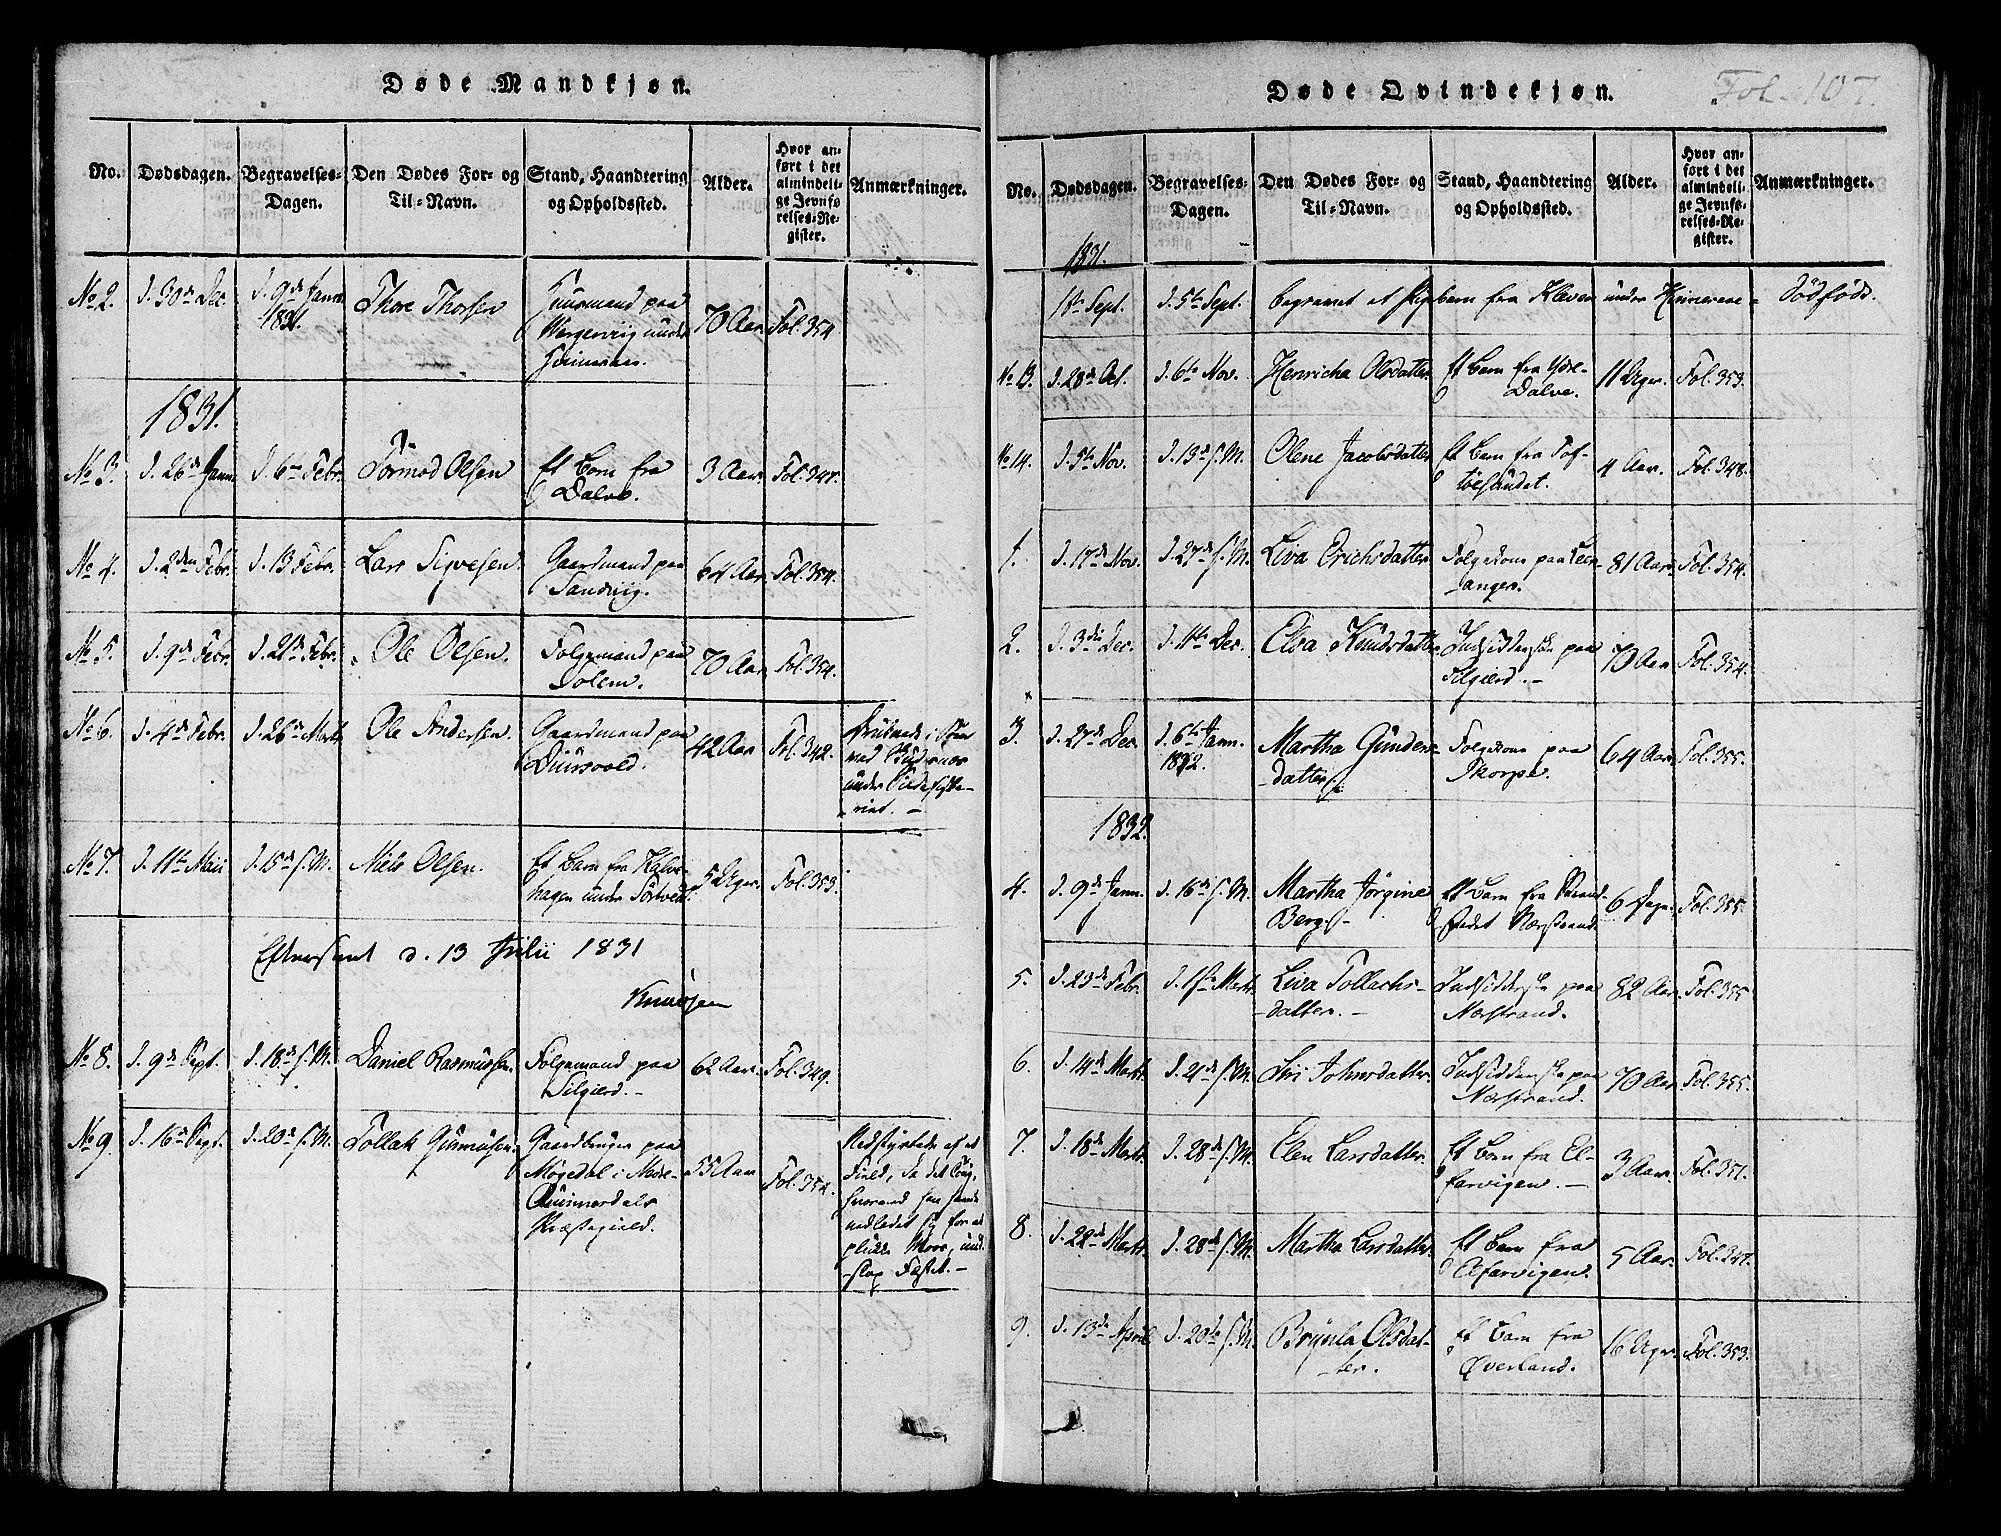 Døde Mandkjøn.
No.
Dødsdagen.
Begravelses-
Dagen.
Den Dødes For- og
Til-Navn.
Stand, Haandtering
og Opholdssted.
Alder.
Hvor an-
ført i det
almindeli-
ge Jevnfø-
relses-Re-
gister.
Anmærkninger.
No 2.
d. 30de Dec
d. 9de Janr.
1831.
Thore Thorsen
Huusmand paa
under
70 Aar
Fol. 354
1831.
No 3.
d. 26de Janr.
d. 6te Febr.
Tormod Olsen
Et Barn fra
Dalve.
3 Aar
Fol. 347.
No 4.
d. 2den Febr.
d. 13 Febr.
Lars Sigvesen
Gaardmand paa
Sandviig.
64 Aar
Fol. 354.
No 5.
d. 9de Febr.
d. 21de Febr.
Ole Olsen.
Folgemand paa
Dolem.
70 Aar
Fol. 354.
No 6.
d. 4de Febr.
d. 26de Marts
Ole Andersen
Gaardmand paa
42 Aar
Fol. 342.
No 7.
d. 11te Maii
d. 15de s. M.
Niels Olsen.
Et Barn fra Halve-
hagen under
5 Uger.
Fol. 353.
Efterseet d. 13 Julii 1831
No 8.
d. 9de Sept.
d. 18de s. M.
Daniel Rasmussen.
Folgemand paa
62 Aar.
Fol. 349.
No 9.
d. 16de Sept.
d. 20de s. M.
Tollak
paa
Mogedal i Nede-
Præstegield.
55 Aar
Fol. 354.
Nedstyrtede af et
Field, da det Toug,
hvorved han havde
nedladet sig for at
plukke Mose, und-
-slap Fæstet.-
Døde Qvindekjøn.
Fol. 107.
No.
Dødsdagen.
Begravelses-
Dagen.
Den Dødes For- og
Til-Navn.
Stand, Haandtering
og Opholdssted.
Alder.
Hvor an-
ført i det
almindeli-
ge Jevnfø-
relses-Re-
gister.
Anmærkninger.
1831.
1ste Sept.
d. 5te Sept.
begravet et Pigebarn fra Kleven under
Dødfødt.
No 13.
d. 28de Oct.
d. 6te Nov.
Henricha Olsdatter
Et Barn fra Ydre-
Dalve.
11 Uger.
Fol. 353.
No 14.
d. 5te Nov.
d. 13de s. M.
Olene Jacobsdatter
Et Barn fra Tof-
tøesundet.
4 Aar.
Fol. 348.
1.
d. 17de Nov.
d. 27de s. M.
Liva Erichsdatter
Folgekone paa Leer-
-anger.
81 Aar
Fol. 354.
2.
d. 3die Dec.
d. 11te Dec.
Elsa Knudsdatter
Indsidderske paa
70 Aar
Fol. 354.
3.
d. 27de Dec.
d. 6te Janr.
1832.
Martha Gunders-
-datter
Folgekone paa
Skorpe.
64 Aar
Fol. 355.
1832.
4.
d. 9de Janr.
d. 16de s. M.
Martha Jørgine
Berg
Et Barn fra Strand-
-stedet Nærstrand
6 Dage.
Fol. 355.
5.
d. 23de Febr.
d. 1ste Marts
Liva Tollachs-
-datter.-
Indsidderske paa
Nærstrand.
82 Aar.
Fol. 355
6.
d. 14de Marts
d. 21de s. M.
Siri Johnsdatter.
Indsidderske paa
Nærstrand.
70 Aar
Fol. 355.
7.
d. 18de Marts
d. 28de s. M.
Elen Larsdatter.
Et Barn fra El-
farvigen.-
3 Aar.
Fol. 351.
8.
d. 22de Marts
d. 28de s. M.
Martha Larsdatter.
Et Barn fra
Elfarvigen.
5 Aar.
Fol. 347.
9.
d. 13de April
d. 20de s. M.
Brynla Olsdat-
-ter.
Et Barn fra
Øverland.
16 Uger.
Fol. 353.